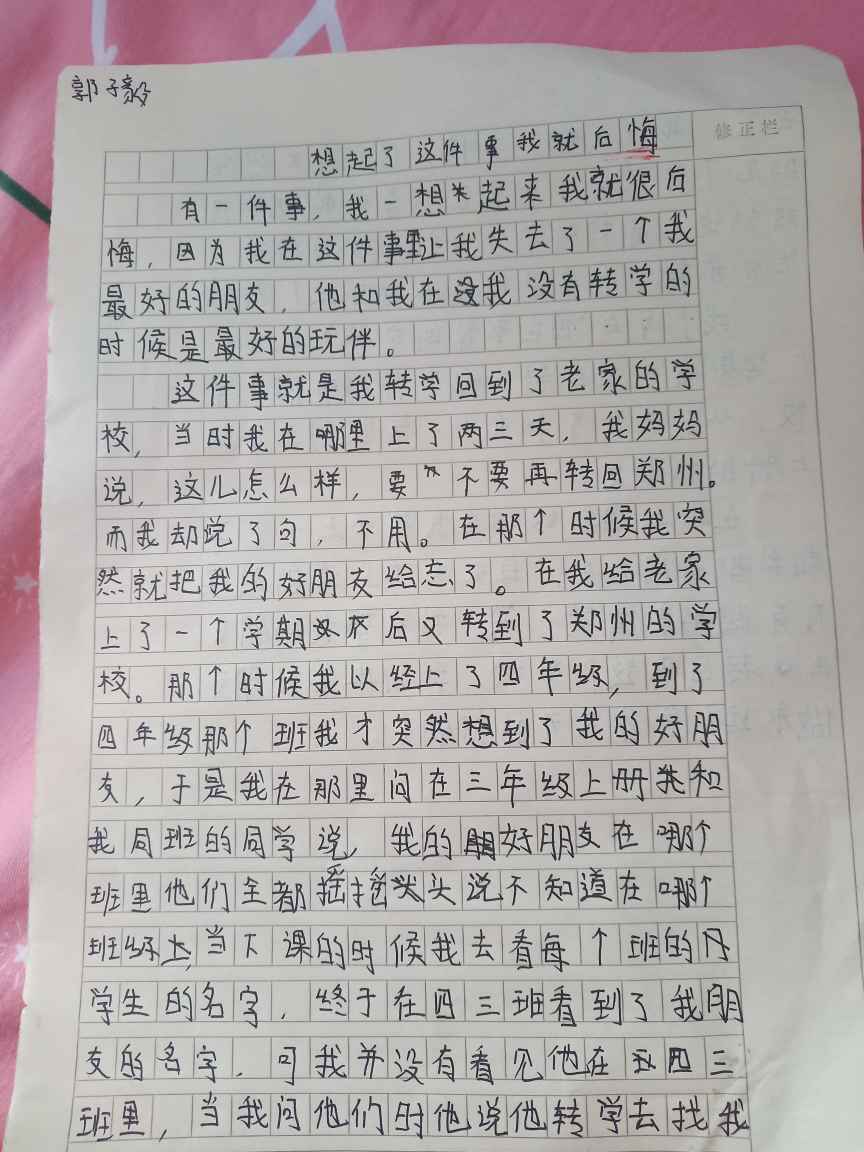 郭子毅
修正栏
想起了这件事我就后悔
有一件事，我一想起来我就很后
悔，因为我在这件事里让我失去了一个我
最好的朋友，他和我在没有转学的
时候是最好的玩伴。
这件事就是我转学回到了老家的学
校，当时我在哪里上了两三天，我妈妈
说，这儿怎么样，要不要再转回郑州。
而我却说了句，不用。在那个时候我突
然就把我的好朋友给忘了。在我给老家
上了一个学期后又转到了郑州的学
校。那个时候我以经上了四年级，到了
四年级那个班我才突然想到了我的好朋
友，于是我在那里问在三年级上册和
我同班的同学说，我的好朋友在哪个
班里他们全都摇摇头说不知道在哪个
班级上，当下课的时候我去看每个班的
学生的名字，终于在四三班看到了我朋
友的名字，可我并没有看见他在四三
班里，当我问他们时他说他转学去找我